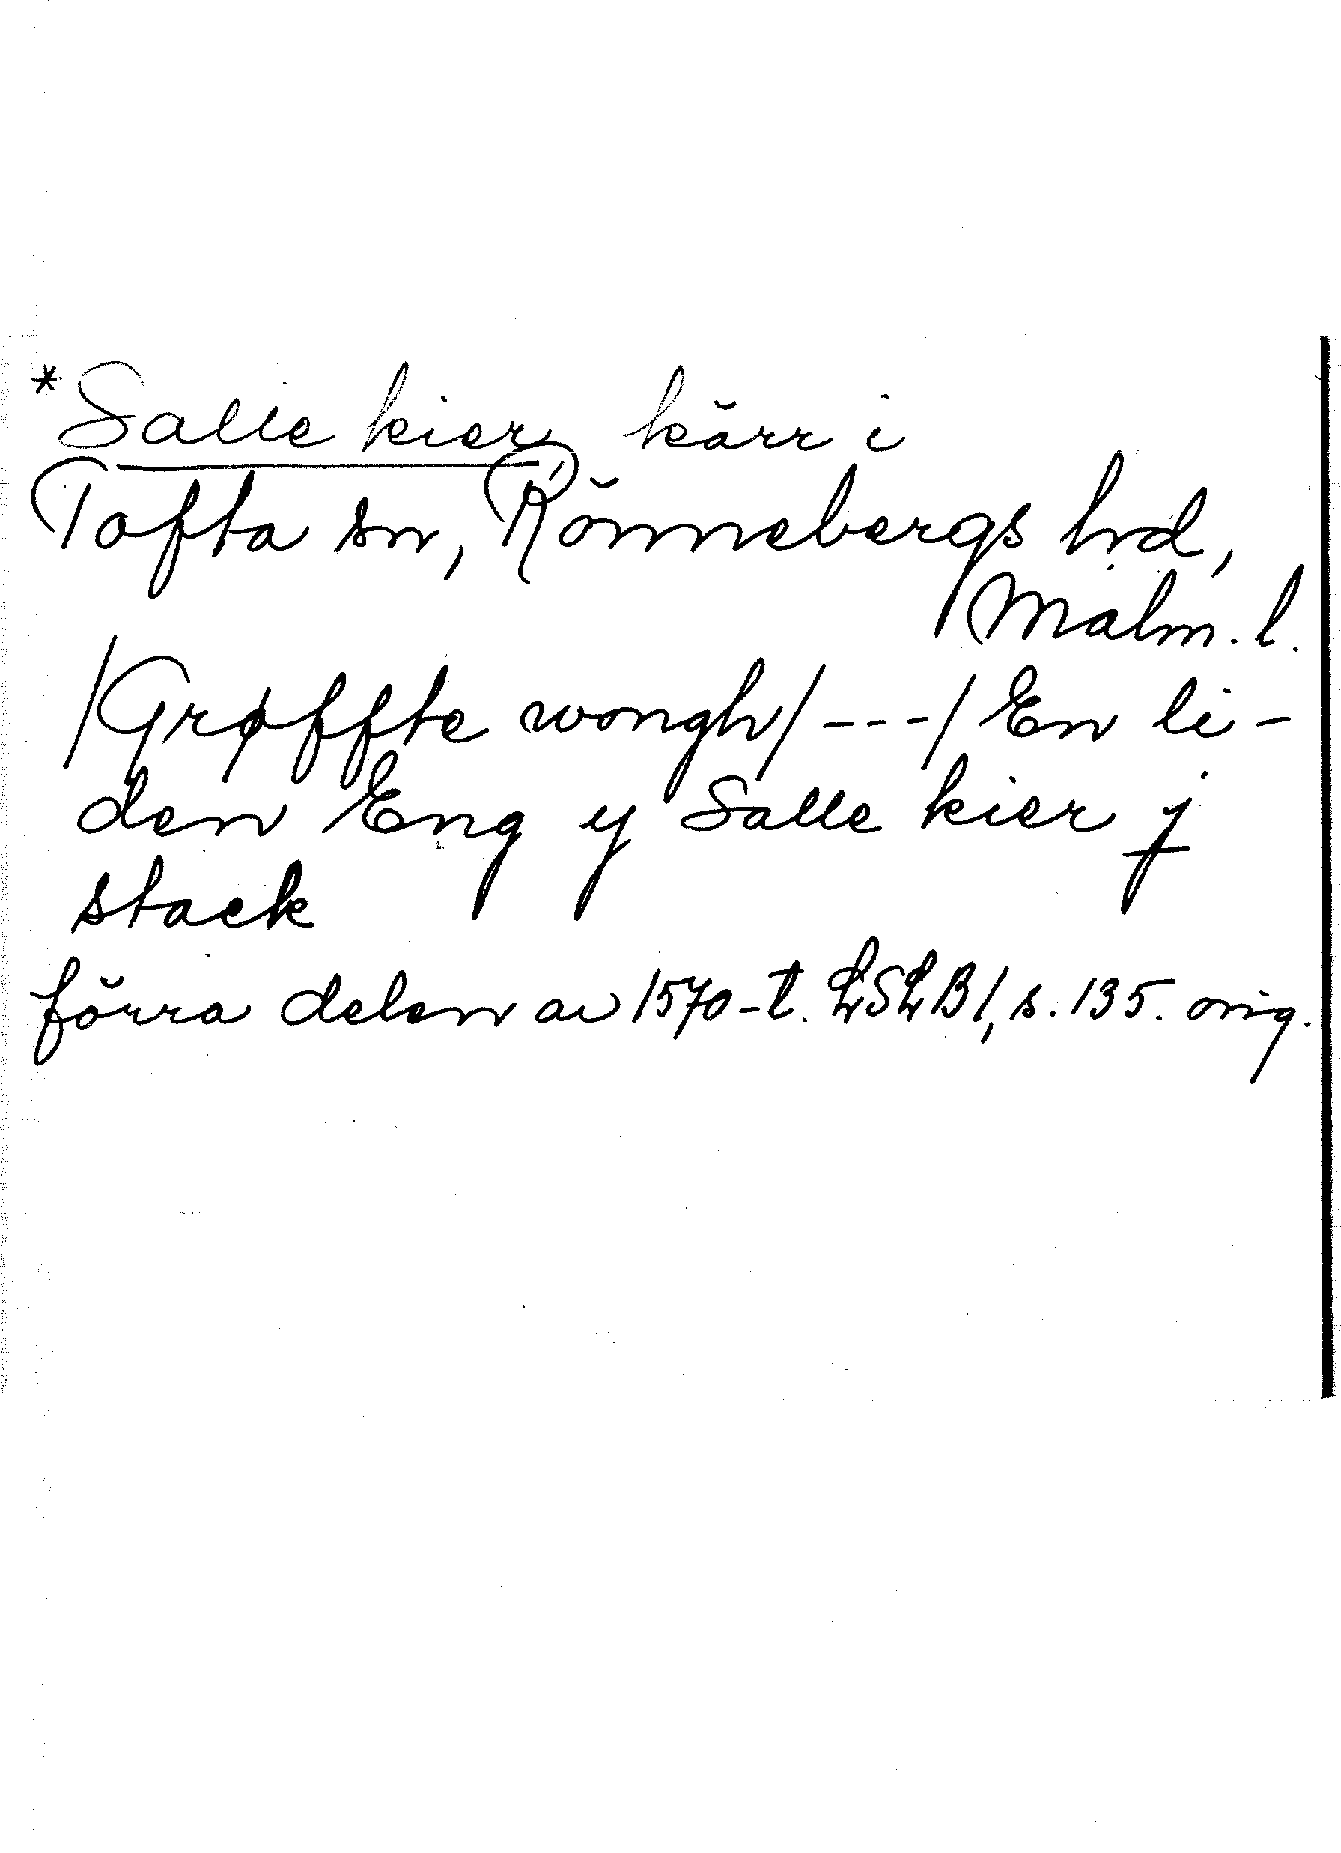 *Salle kier, kärr i
Tofta sn, Rönnebergs hrd,
Malm. l.
/Grøffte wongh/---/ En li-
den Eng y Salle kier j
stack
förra delen av 1570-t. LSLB 1, s. 135. orig.